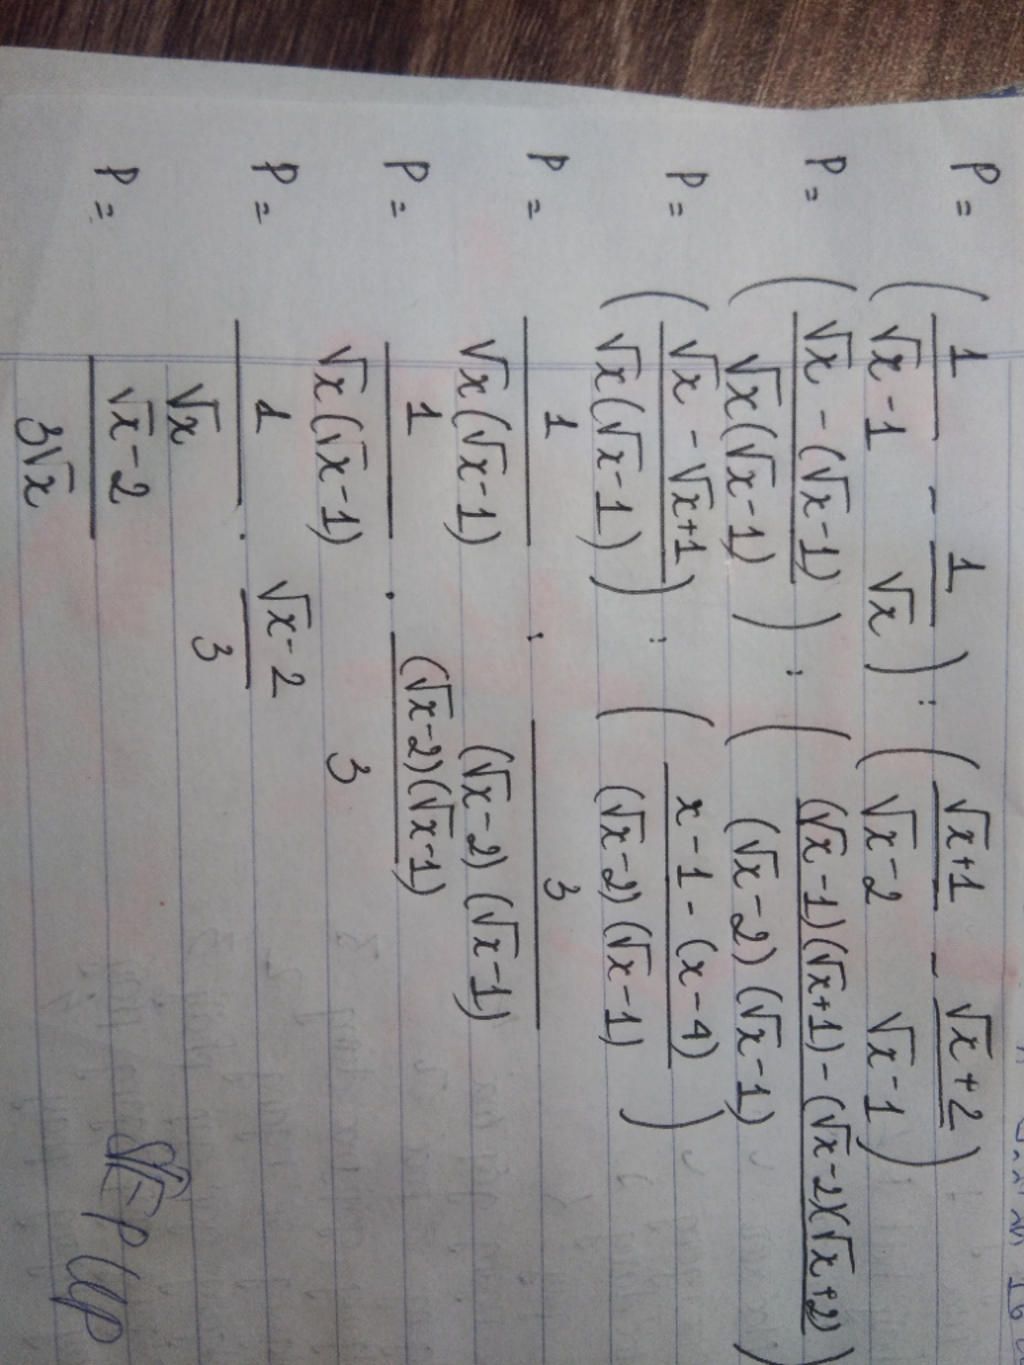 P = ( 1/(√x-1) - 1/√x ) : ( (√x+1)/(√x-2) - (√x+2)/(√x-1) )
P = ( (√x - (√x-1))/(√x(√x-1)) ) : ( ((√x-1)(√x+1) - (√x-2)(√x+2))/((√x-2)(√x-1)) )
P = ( (√x - √x+1)/(√x(√x-1)) ) : ( (x-1-(x-4))/((√x-2)(√x-1)) )
P = 1/(√x(√x-1)) : 3/((√x-2)(√x-1))
P = 1/(√x(√x-1)) . ((√x-2)(√x-1))/3
P = 1/√x . (√x-2)/3
P = (√x-2)/(3√x)